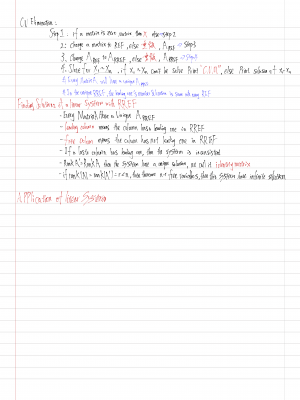 GJ Elimination:
Step 1: if a matrix is zero matrix then else step 2
2: change a matrix to REF, else A_REF → step 3
3: Change A_REF to A_RREF, else A_RREF → step 4
4: Solve For X₁~Xₙ, if can't be solve Print "C.I.N", else Print solution of X₁~Xₙ
Every Matrix A will have a unique A_RREF
In the unique RREF, the leading one is
Finding Solutions of a linear System with RREF
- Every Matrix A have a Unique A_RREF
- leading column means the column has leading one in RREF
- free column means the column has not leading one in RREF
- If a last column has leading one, then the system is inconsistent
- Rank = Rank A, then the system have a unique solution, we call it identity matrix
- if rank(A) = = r < n, then there are n-r free variables, then this system have infinite solution
Application of linear System